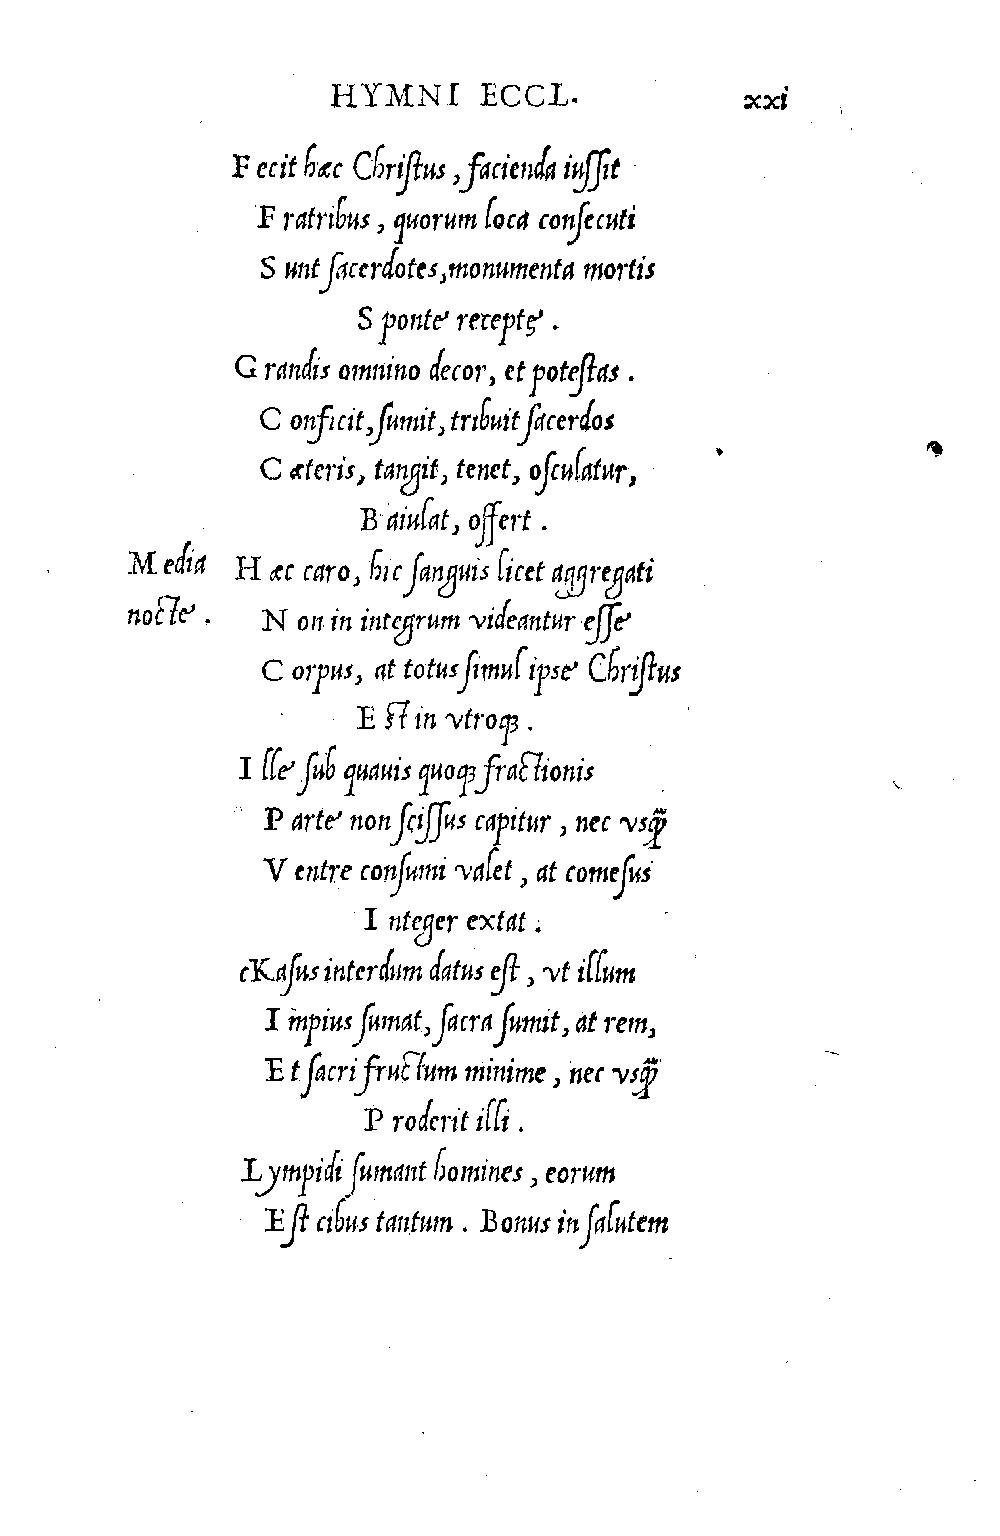 HYMNI ECCL. xxi
Fecit hæc Chriſtus, facienda iuſſit
Fratribus, quorum loca conſecuti
Sunt ſacerdotes, monumenta mortis
Sponte receptę.
Grandis omnino decor, et poteſtas.
Conficit, ſumit, tribuit ſacerdos
Cæteris, tangit, tenet, oſculatur,
Baiulat, offert.
Media Hæc caro, hic ſanguis licet aggregati
nocte. Non in integrum videantur eſſe
Corpus, at totus ſimul ipse Chriſtus
Eſt in vtroqꝫ.
Ille ſub quauis quoqꝫ fractionis
Parte non ſciſſus capitur, nec vsq̃
Ventre conſumi valet, at comeſus
Integer extat.
cKaſus interdum datus eſt, vt illum
Impius ſumat, ſacra ſumit, at rem,
Et ſacri fructum minime, nec vsq̃
Proderit illi.
Lympidi ſumant homines, eorum
Eſt cibus tantum. Bonus in ſalutem